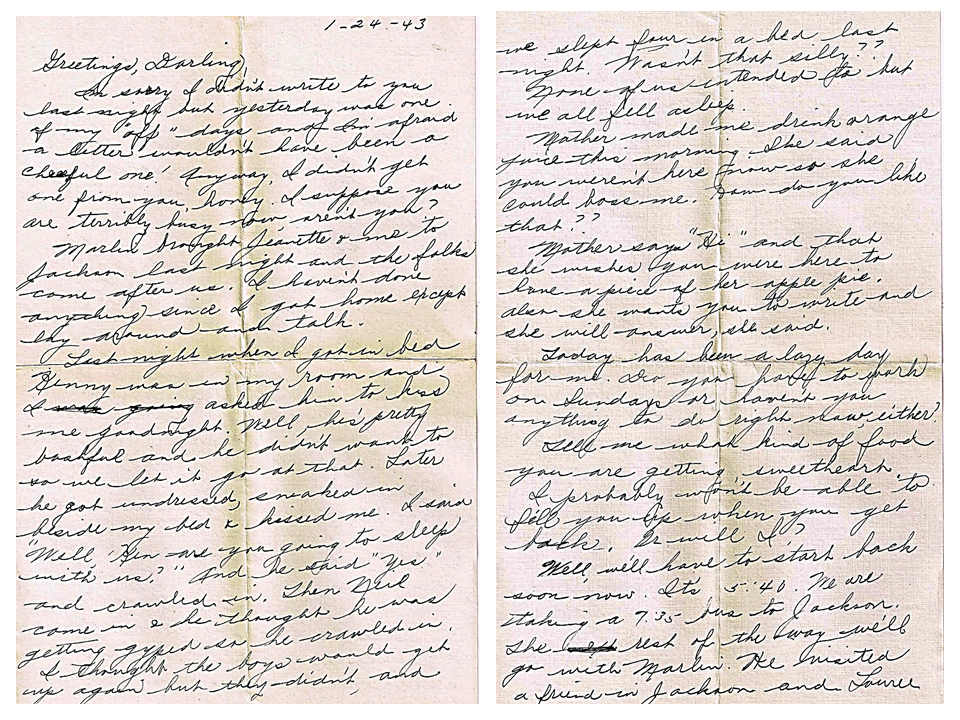 1-24-43
Greetings, Darling,
Im sorry I didn't write to you
last night but yesterday was one
of my "off" days and I'm afraid
a letter wouldn't have been a
cheerful one! Anyway, I didn't get
one from you, honey. I suppose you
are terribly busy now, aren't you?
Marlin brought Jeanette & me to
Jackson last night and the folks
come after us. I haven't done
anything since I got home except
lay around and talk.
Last night when I got in bed
Kenny was in my room and
I was going asked him to kiss
me goodnight. Well, he's pretty
bashful and he didn't want to
so we let it go at that. Later
he got undressed, sneaked in
beside my bed & kissed me. I said
"Well, Ken are you going to sleep
with us?" And he said "Yes"
and crawled in. Then Neil
come in & he thought he was
getting gyped so he crawled in.
I thought the boys would get
up again but they didn't, and
we slept four in a bed last
night. Wasn't that silly??
None of us intended to but
we all fell asleep.
Mother made me drink orange
juice this morning. She said
you weren't here now so she
could boss me. How do you like
that??
Mother says "Hi" and that
she wishes you were here to
have a piece of her apple pie.
also she wants you to write and
she will answer, she said.
Today has been a lazy day
for me. Do you have to work
on Sunday or haven't you
anything to do right now, either?
Tell me what kind of food
you are getting sweetheart.
I probably won't be able to
fill you up when you get
back. Or will I?
Well, we'll have to start back
soon now. Its 5:40. We are
taking a 7:35 bus to Jackson.
The rest of the way we'll
go with Marlin. He visited
a friend in Jackson and